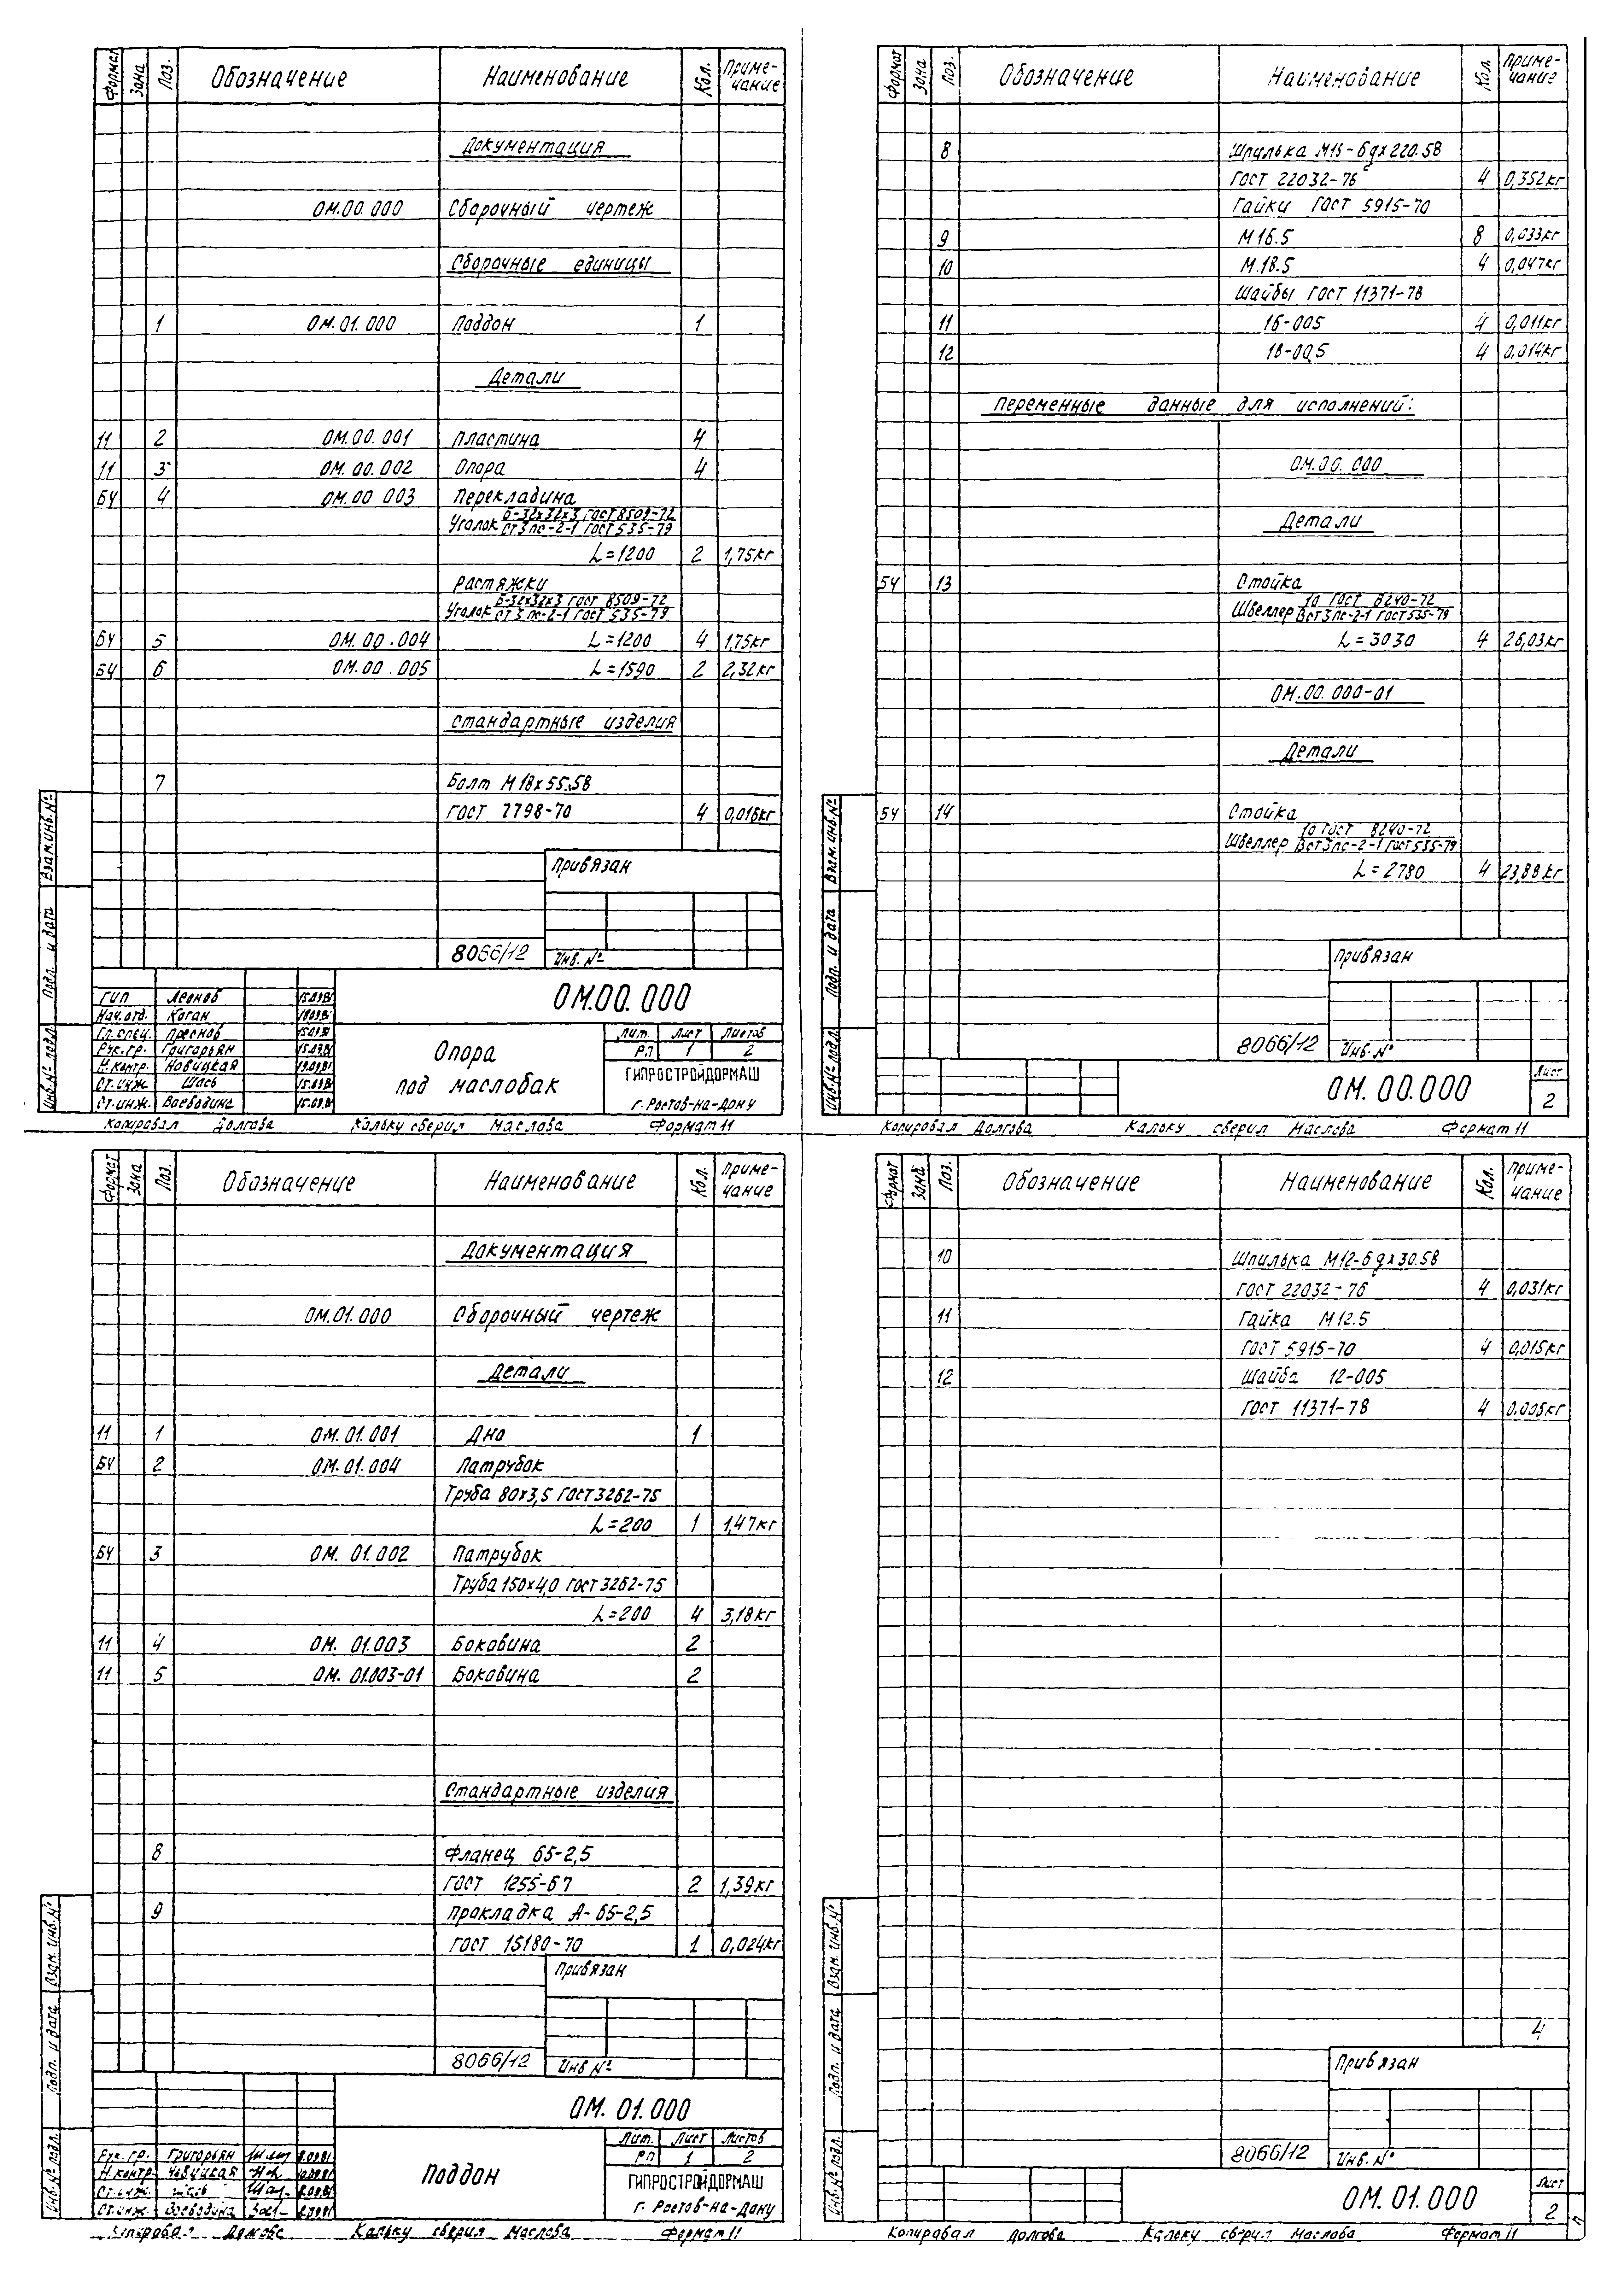 Формат Зона Поз. Обозначение Наименование Кол. Приме-
чание
Документация
ОМ.00.000 Сборочный чертеж
Сборочные единицы
1 ОМ.01.000 Поддон 1
Детали
11 2 ОМ.00.001 Пластина 4
11 3 ОМ.00.002 Опора 4
БЧ 4 ОМ.00 003 Перекладина
Уголок Б-32х32х3 ГОСТ 8509-72
Ст3пс-2-1 ГОСТ 535-79
L=1200 2 1,75кг
Растяжки
Уголок Б-32х32х3 ГОСТ 8509-72
Ст 3 пс-2-1 ГОСТ 535-79
БЧ 5 ОМ.00.004 L=1200 4 1,75кг
БЧ 6 ОМ.00.005 L=1590 2 2,32кг
Стандартные изделия
7 Болт М18х55.58
ГОСТ 7798-70 4
Привязан
8066/12 Инв. №
Взам.инв.№
Подп. и дата
Инв.№ подл.
ГИП Леонов 15.09.81
Нач.отд. Коган
Гл.спец. Преснов 15.09.81
Рук.гр. Григорьян 15.09.81
Н.контр. Новицкая
Ст.инж. Шась 15.09.81
Ст.инж. Воеводина 15.09.81
ОМ.00.000
Опора
под маслобак
Лит. Лист Листов
РП 1 2
ГИПРОСТРОЙДОРМАШ
г. Ростов-на-Дону
Копировал Долгова Кальку сверил Маслова Формат 11
Формат Зона Поз. Обозначение Наименование Кол. Приме-
чание
8 Шпилька М16-6gх220.58
ГОСТ 22032-76 4 0,352кг
Гайки ГОСТ 5915-70
9 М16.5 8 0,033кг
10 М.18.5 4 0,047кг
Шайбы ГОСТ 11371-78
11 16-005 4 0,011кг
12 18-005 4 0,014кг
Переменные данные для исполнений:
ОМ.00.000
Детали
БЧ 13 Стойка
Швеллер 10 ГОСТ 8240-72
Вст3пс-2-1 ГОСТ 535-79
L=3030 4 26,03кг
ОМ.00.000-01
Детали
БЧ 14 Стойка
Швеллер 10 ГОСТ 8240-72
Вст3пс-2-1 ГОСТ 535-79
L=2780 4 23,88кг
Привязан
8066/12 Инв. №
Взам.инв.№
Подп. и дата
Инв.№ подл.
ОМ.00.000
Лист
2
Копировал Долгова Кальку сверил Маслова Формат 11
Формат Зона Поз. Обозначение Наименование Кол. Приме-
чание
Документация
ОМ.01.000 Сборочный чертеж
Детали
11 1 ОМ.01.001 Дно 1
БЧ 2 ОМ.01.004 Патрубок
Труба 80х3,5 ГОСТ 3262-75
L=200 1 1,47кг
БЧ 3 ОМ.01.002 Патрубок
Труба 150х4,0 ГОСТ 3262-75
L=200 4 3,18кг
11 4 ОМ.01.003 Боковина 2
11 5 ОМ.01.003-01 Боковина 2
Стандартные изделия
8 Фланец 65-2,5
ГОСТ 1255-67 2 1,39кг
9 Прокладка А-65-2,5
ГОСТ 15180-70 1 0,024кг
Привязан
8066/12 Инв №
Взам. инв.№
Подп. и дата
Инв.№ подл.
ОМ.01.000
Рук.гр. Григорьян
Н.контр.
Ст.инж.
Ст.инж. Воеводина
Поддон
Лит. Лист Листов
РП 1 2
ГИПРОСТРОЙДОРМАШ
г. Ростов-на-Дону
Копировал Кальку сверил Маслова Формат 11
Формат Зона Поз. Обозначение Наименование Кол. Приме-
чание
10 Шпилька М12-6gх30.58
ГОСТ 22032-76 4 0,031кг
11 Гайка М12.5
ГОСТ 5915-70 4 0,015кг
12 Шайба 12-005
ГОСТ 11371-78 4 0.006кг
4
Привязан
8066/12 Инв. №
Взам. инв.№
Подп. и дата
Инв.№ подл.
ОМ.01.000
Лист
2
4
Копировал Долгова Кальку сверил Маслова Формат 11